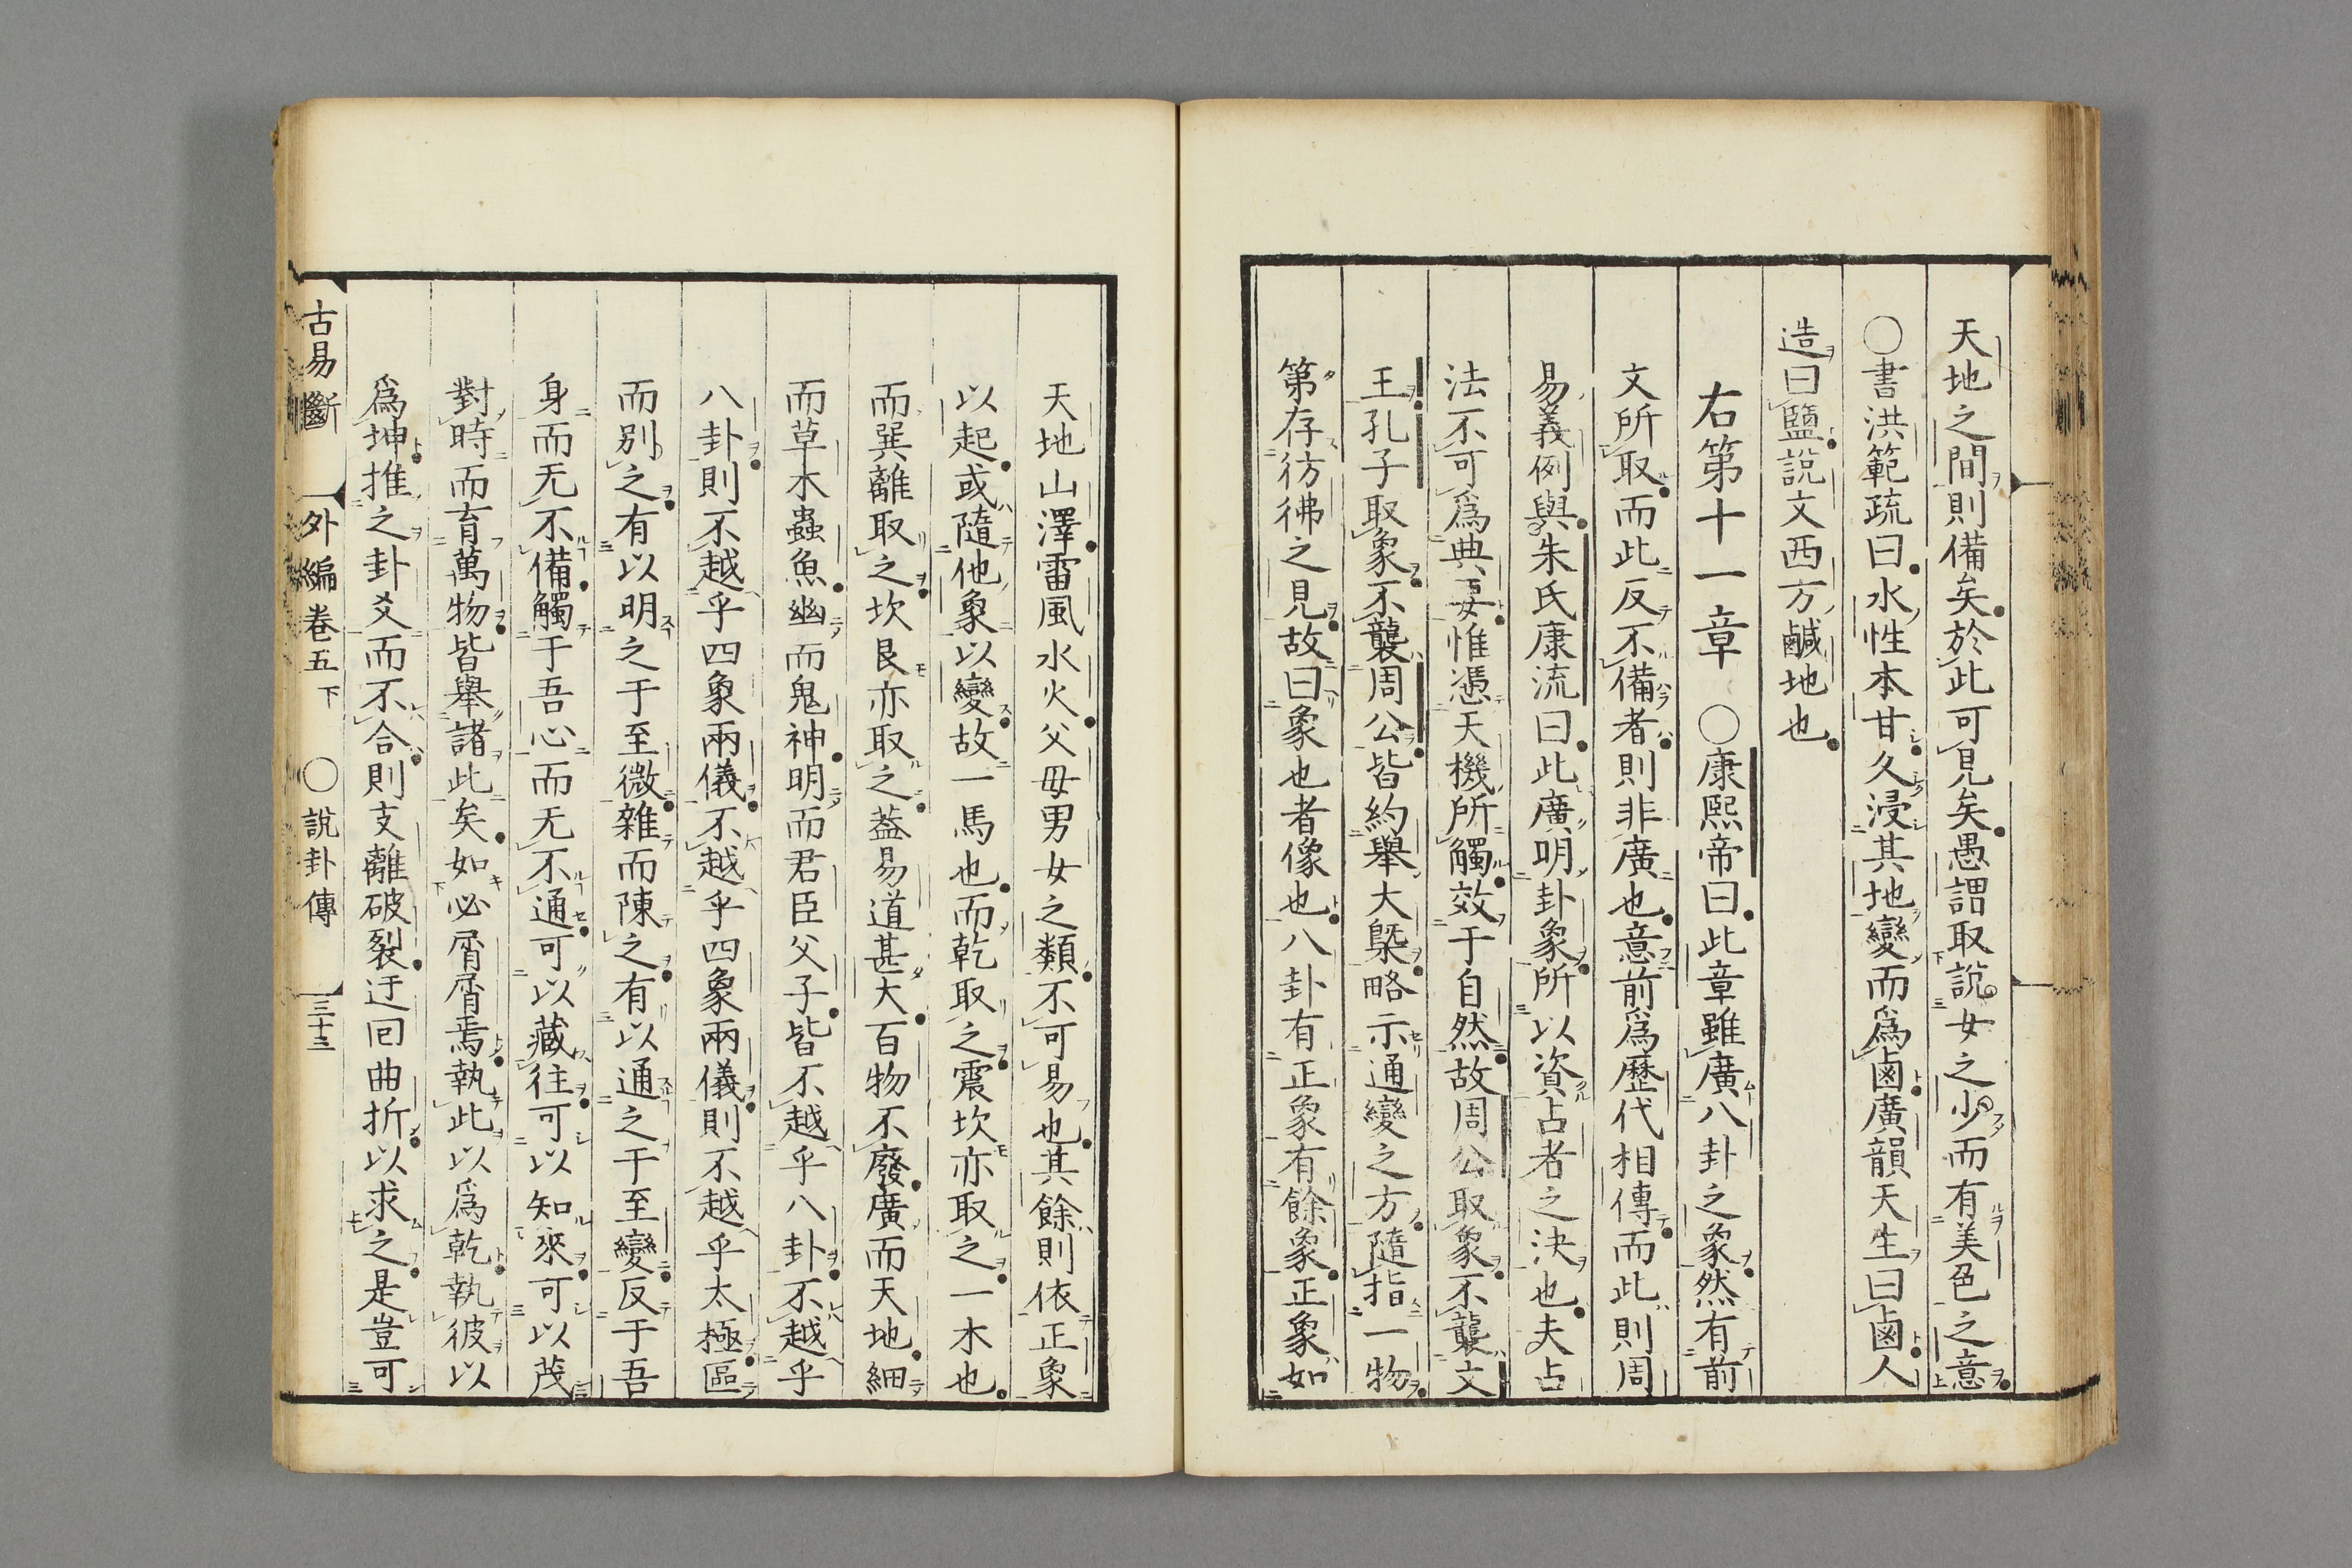 天地之間則備矣於此可見矣愚謂取説女之少而有美色之意
〇書洪範疏曰水性本甘久浸其地變而爲鹵廣韻天生曰鹵人
造曰鹽説文西方鹹地也
右第十一章 〇康熙帝曰此章雖廣八卦之象然有前
文所取而此反不備者則非廣也意前爲歷代相傳而此則周
易義例與朱氏康流曰此廣明卦象所以資占者之決也夫占
法不可爲典要惟憑天機所觸效于自然故周公取象不襲文
王孔子取象不襲周公皆約舉大槩略示通變之方隨指一物
第存彷彿之見故曰象也者像也八卦有正象有餘象正象如
天地山澤雷風水火父母男女之類不可易也其餘則依正象
以起或隨他象以變故一馬也而乾取之震坎亦取之一木也
而巽離取之坎艮亦取之葢易道甚大百物不廢廣而天地細
而草木蟲魚幽而鬼神明而君臣父子皆不越乎八卦不越乎
八卦則不越乎四象兩儀不越乎四象兩儀則不越乎太極區
而别之有以明之于至微雜而陳之有以通之于至變反于吾
身而无不備觸于吾心而无不通可以藏往可以知來可以茂
對時而育萬物皆舉諸此矣如必屑屑焉執此以爲乾執彼以
爲坤推之卦爻而不合則支離破裂迂回曲折以求之是豈可
古易斷 外編卷五下 〇説卦傳 三十三